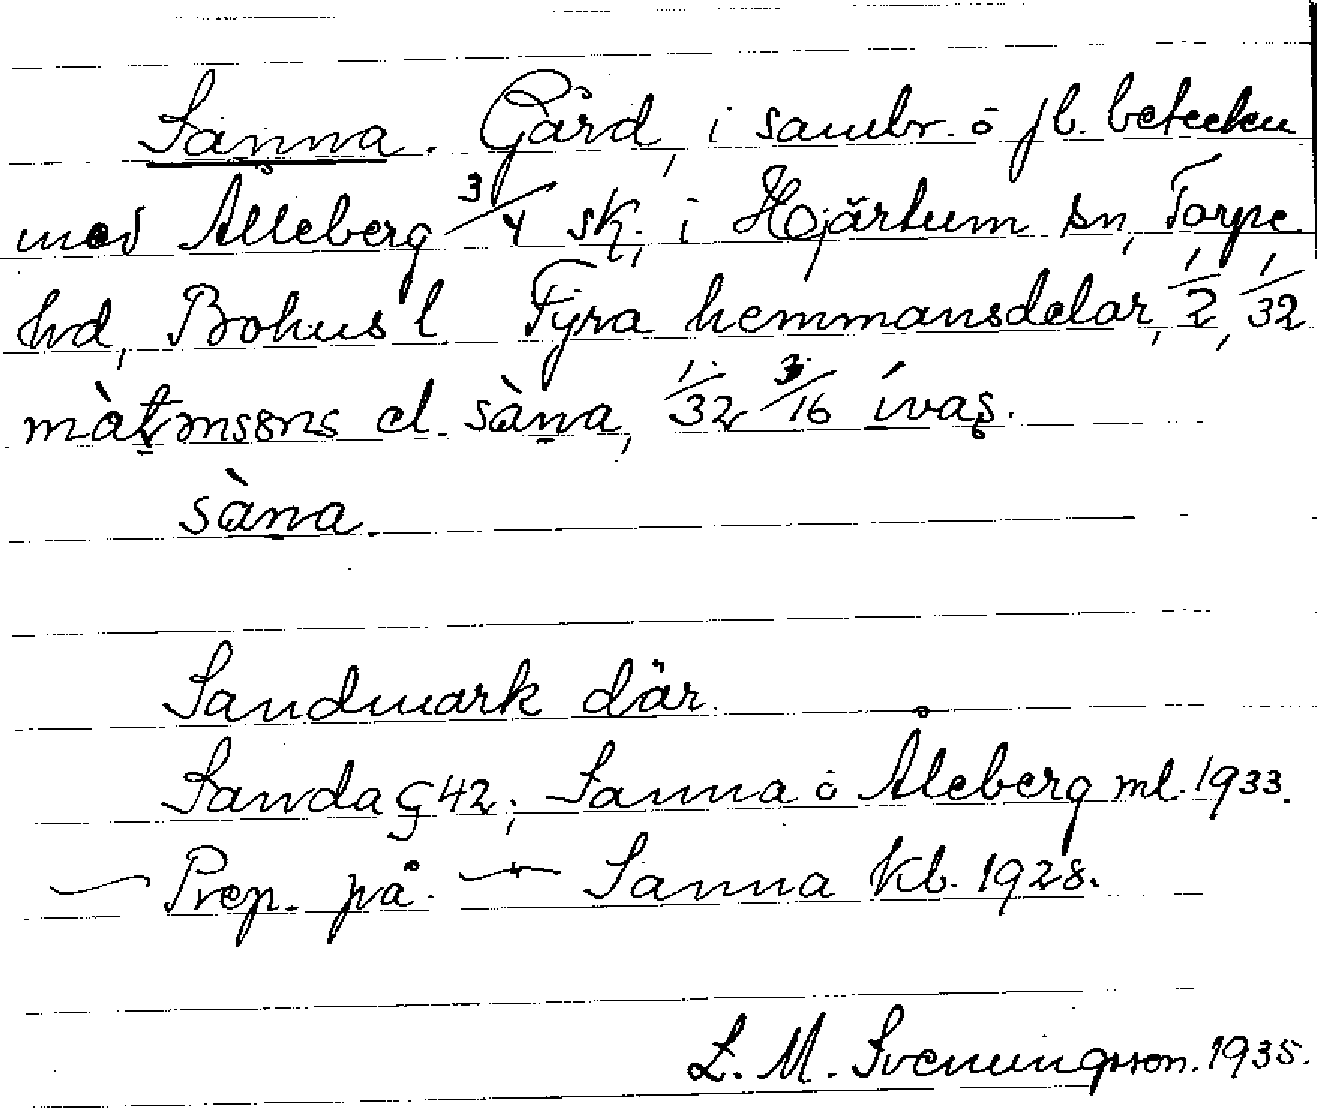 Sanna. Gård, i sambr. o jb. beteckn
med Ålleberg 3/4 sk, i Hjärtum sn, Torpe
hd, Bohus l Fyra hemmansdelar, 1/2, 1/32
màtmssns el. sàna, 1/32 3/16 ívas.
sàna.
Sandmark där.
Sanda G 42; Sanna o Åleberg ml. 1933.
— Prep. på. — Sanna kb. 1928.
L. M. Svenungsson. 1935.